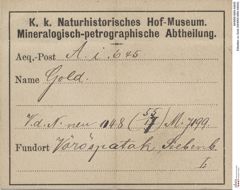 K. k. Naturhistorisches Hof-Museum.
Mineralogisch-petrographische Abtheilung.
Acq.-Post A. i. 645
Name Gold.
V. d. N. neu 1048 (55/7) M. 7099
Fundort Vöröspatak, Siebenb.